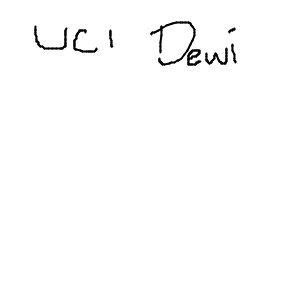 UCI Dewi